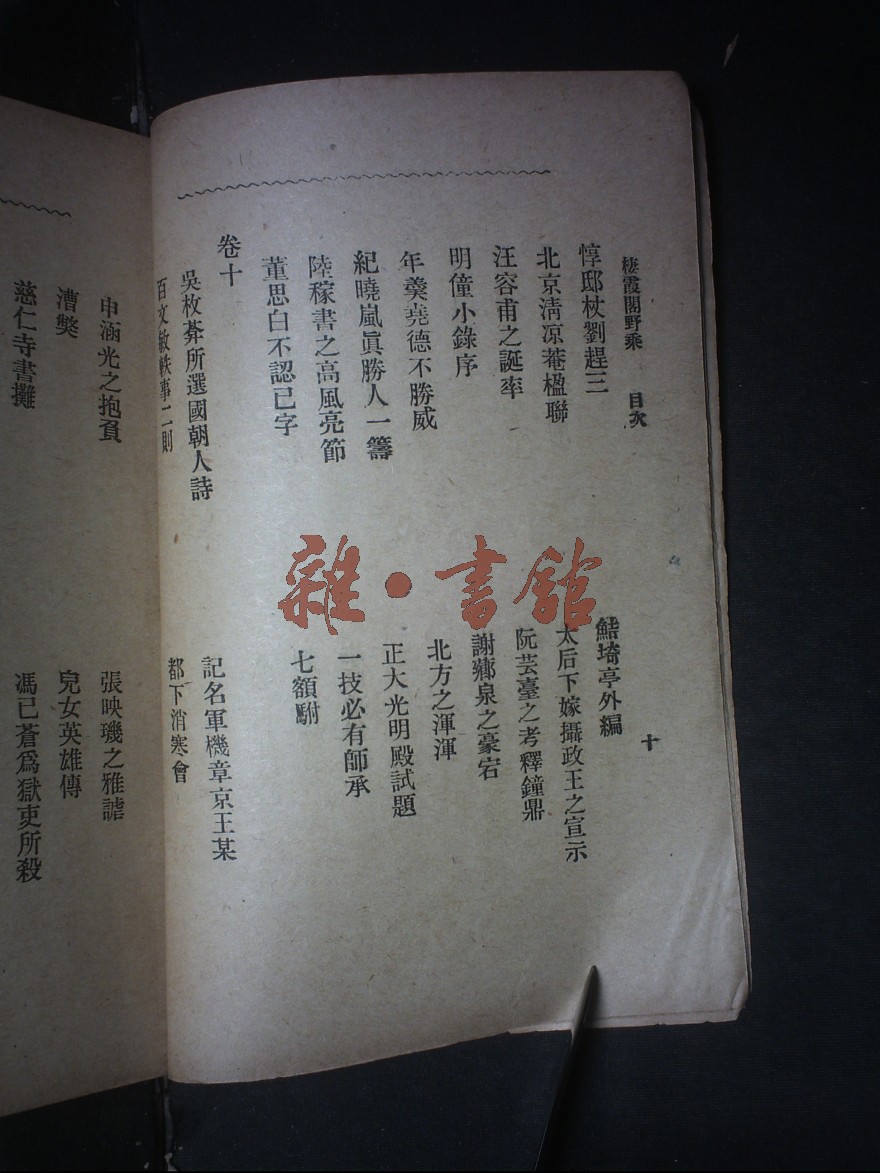 棲霞閣野乘 目次 十
惇邸杖劉趕三
鮚埼亭外編
北京淸凉菴楹聯
太后下嫁攝政王之宣示
汪容甫之誕率
阮芸臺之考釋鐘鼎
明僮小錄序
謝薌泉之豪宕
年羹堯德不勝威
北方之渾渾
紀曉嵐眞勝人一籌
正大光明殿試題
陸稼書之高風亮節
一技必有師承
董思白不認己字
七額駙
卷十
吳枚菴所選國朝人詩
記名軍機章京王某
百文敏軼事二則
都下消寒會
申涵光之抱負
張映璣之雅謔
漕弊
兒女英雄傳
慈仁寺書攤
馮已蒼爲獄吏所殺
雜·書館